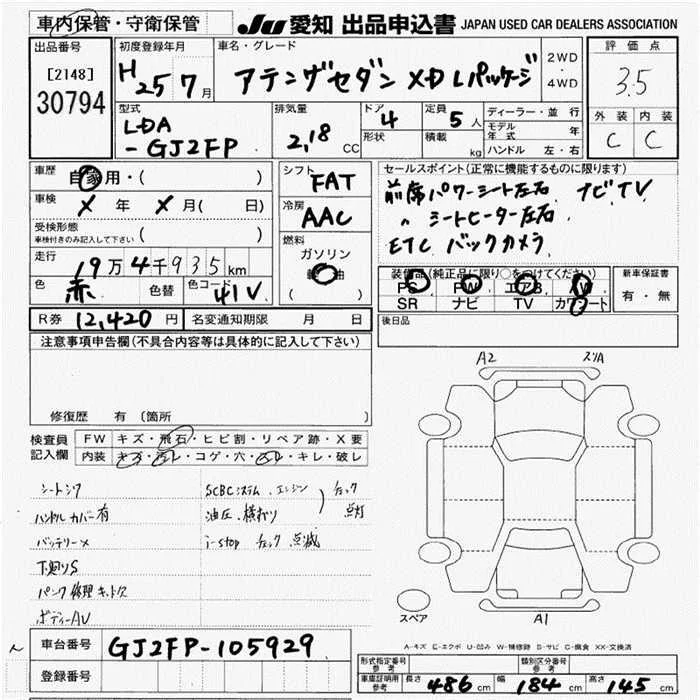 車内保管・守衛保管
JU 愛知 出品申込書 JAPAN USED CAR DEALERS ASSOCIATION
出品番号
[2148]
30794
初度登録年月
H25 7月
車名・グレード
アテンザセダン XD Lパッケージ
2WD
・
4WD
評価点
3.5
外装 内装
C C
型式
LDA
-GJ2FP
排気量
2,18 CC
ドア 4
形状
定員 5 人
積載 kg
ディーラー・並行
モデル年式 年
ハンドル 左・右
車歴
自家用・( )
車検 X 年 X 月( 日)
受検形態
車検付きのみ記入して下さい ( )
走行
19万4千935km
色 赤 色替 色コード 41V
シフト
FAT
冷房
AAC
燃料
ガソリン
軽油
( )
セールスポイント(正常に機能するものに限ります)
前席パワーシート左右 ナビ.TV
〃 シートヒーター左右
ETC バックカメラ
装備品(純正品に限り○をつけてください)
PS PW エアB AW
SR ナビ TV カワシート
新車保証書
有・無
R券 12,420 円 名変通知期限 月 日
後日品
注意事項申告欄(不具合内容等は具体的に記入して下さい)
修復歴 有 (箇所 )
検査員
記入欄
FW キズ・飛石・ヒビ割・リペア跡・X要
内装 キズ・汚レ・コゲ・穴・スレ・キレ・破レ
シートシワ
ハンドルカバー有
バッテリー×
下廻りS
パンク修理キット欠
ボディーAV
SCBCシステム、エンジン
油圧、横すべり
チェック
点灯
i-stop チェック 点滅
A2
スリA
スペア
A1
A-キズ E-エクボ U-凹み W-補修跡 S-サビ C-腐食 XX-交換済
車台番号 GJ2FP-105929
登録番号
形式指定番号
参考
類別区分番号
参考
車庫証明用
参考
長さ 486 cm 幅 184 cm 高さ 145 cm